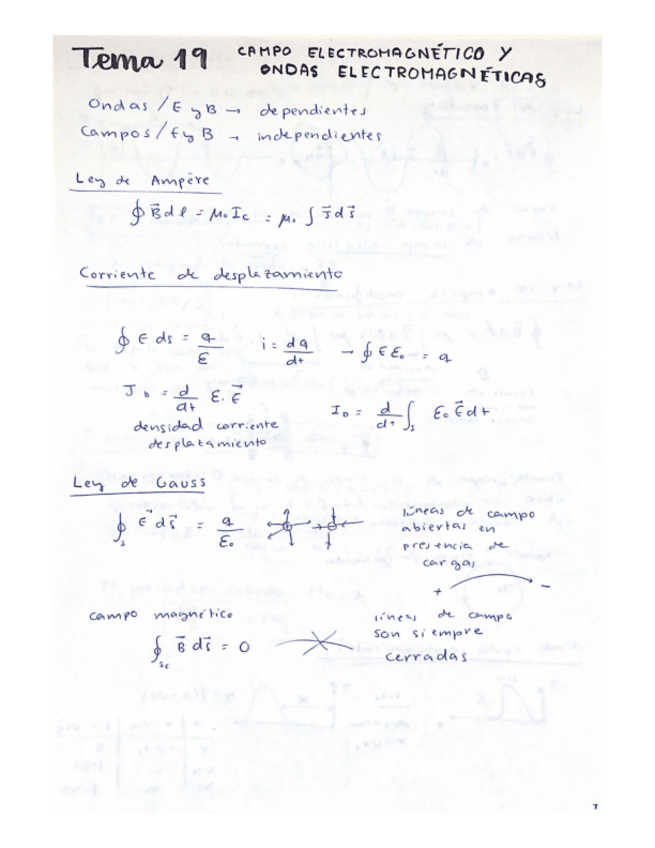 Tema 19 CAMPO ELECTROMAGNÉTICO Y
ONDAS ELECTROMAGNÉTICAS
Ondas / E y B → dependientes
Campos / E y B → independientes
Ley de Ampère
∮ B⃗ dl = μ₀ I_c = μ₀ ∫ J⃗ ds⃗
Corriente de desplazamiento
∮ E ds = q/ε i = dq/dt → ∮ E ε₀ = q
J_D = d/dt ε. E⃗ I_D = d/dt ∫_s ε₀ E⃗ dt
densidad corriente
desplazamiento
Ley de Gauss
∮_s E⃗ ds⃗ = q/ε₀
líneas de campo
abiertas en
presencia de
cargas
+ −
campo magnético
∮_sc B⃗ ds⃗ = 0
líneas de campo
son siempre
cerradas
7